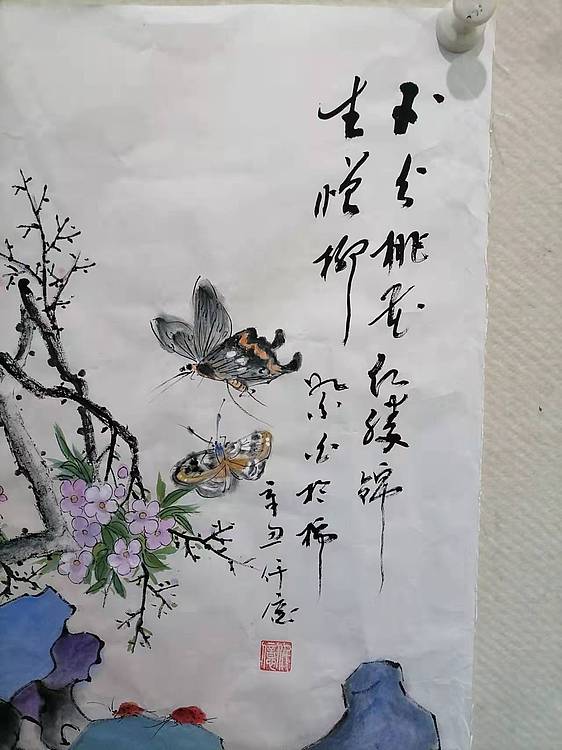 不分桃花紅勝錦
生憎柳
絮白於棉
辛丑仟億